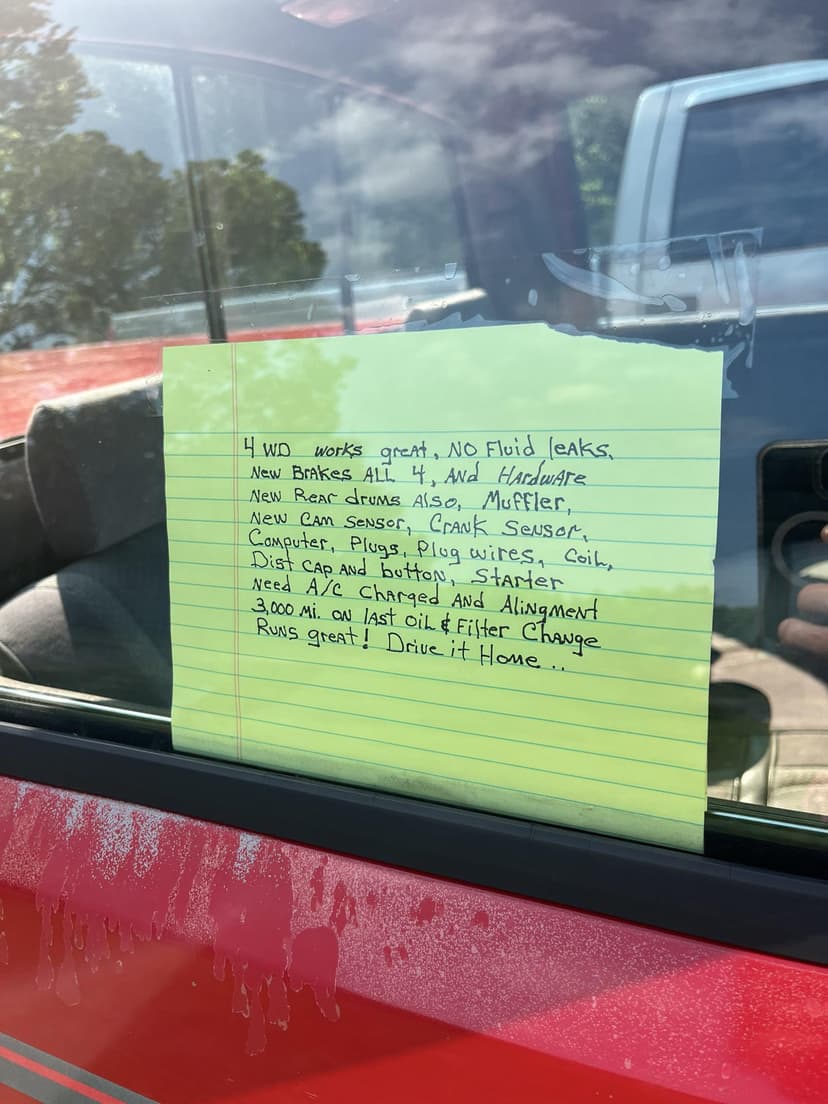 4 WD works great, NO Fluid leaks,
New Brakes ALL 4, AND Hardware
New Rear drums Also, Muffler,
New Cam Sensor, Crank Sensor,
Computer, Plugs, Plug wires, Coil,
Dist cap and button, Starter
Need A/C Charged AND Alingment
3,000 Mi. on last oil & Filter Change
Runs great! Drive it Home..